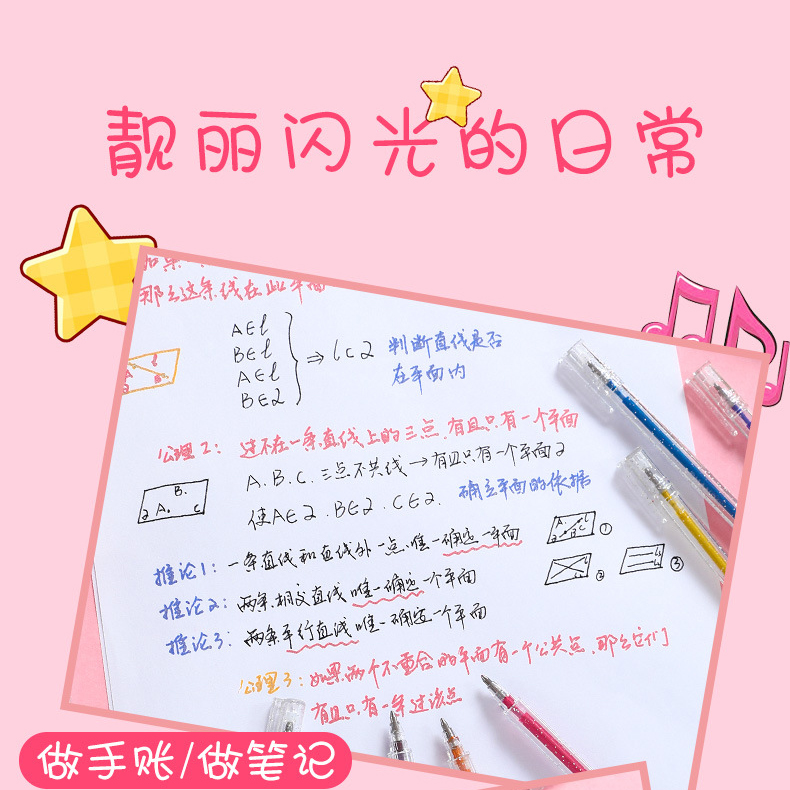 靓丽闪光的日常
那么这条线在此平面
A∈l
B∈l
A∈l
B∈2
⇒ l⊂2
判断直线是否
在平面内
公理2: 过不在一条直线上的三点,有且只有一个平面
A.B.C.三点不共线→有且只有一个平面2
使A∈2.B∈2.C∈2.
确立平面的依据
B.
2 A. C
推论1: 一条直线和直线外一点,唯一确定一平面
推论2: 两条相交直线唯一确定一个平面
推论3: 两条平行直线唯一确定一个平面
①
②
③
公理3: 如果两个不重合的平面有一个公共点,那么它们
有且只有一条过该点
做手账/做笔记